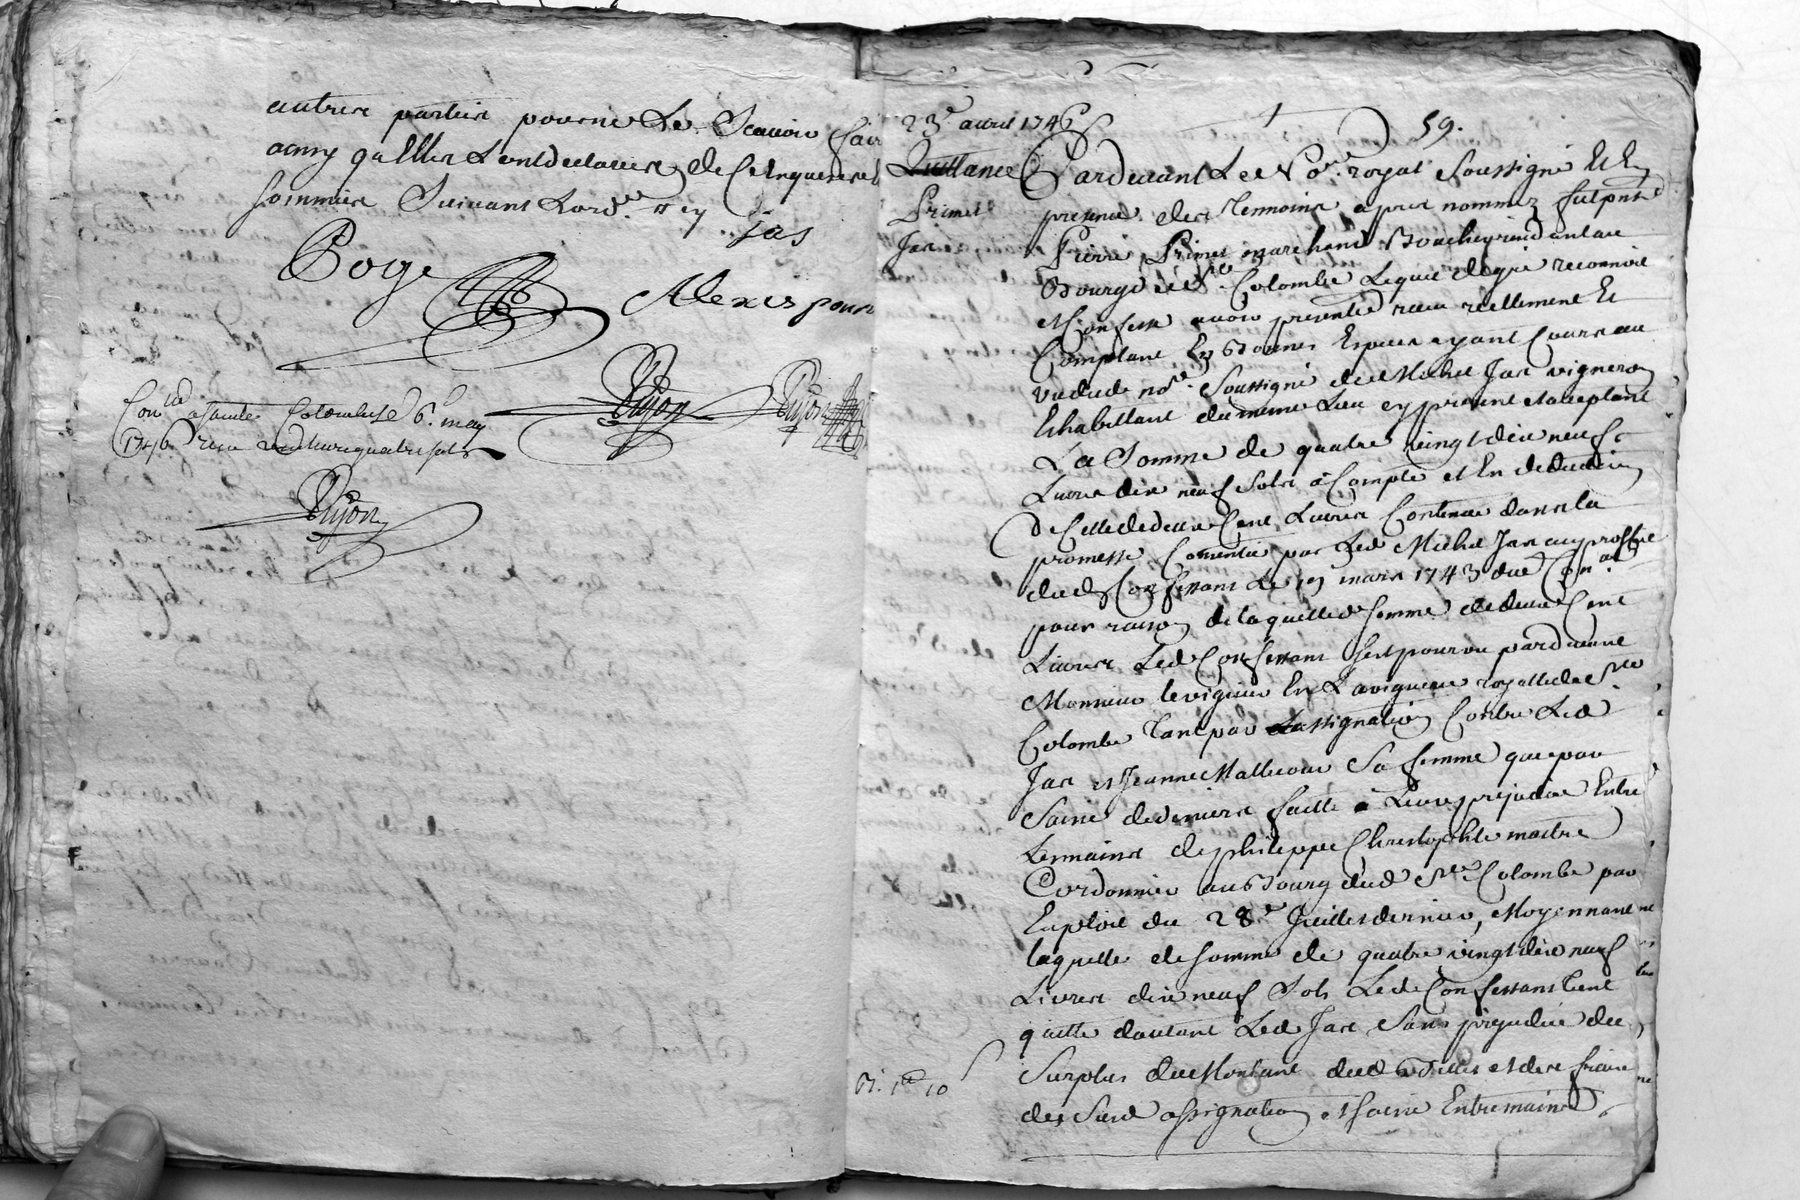 autres parties pour ne Le Scavoir fair
acquis qu'elles L'ont declarées de ce enquerés et
sommées Suivant Lord.ce
jas
Poge
Alexis pour
Pujon
Pujon
Con.lé a sainte Colombe Le 6.e may
1746 recu vingt quatre sols
Pujon
23.e avril 1746
59.
Quittance
Primet
Jas
Pardevant Le No.re royal Soussigné Et En
presence des temoins apres nommez fut p.nt
Pierre Primet marchand Boucher residant au
Bourg de S.te Colombe Lequel de gré reconnoit
et Confesse avoir presentem.t receu reellement Et
Comptant En Bonnes Especes ayant Cours au
vu du d.e no.re Soussigné de Michel Jas vigneron
Et habittant du meme Lieu cy present et acceptant
La Somme de quatre vingt dix neuf
Livres dix neuf Sols à Compte et En deduction
de Celle de deux Cent Livres Contenue dans la
promesse Consentie par Led Michel Jas au proffit
dud Confessant Le 19 mars 1743 due Con.lée
pour raison de laquelle d.e somme de deux Cent
Livres Led Confessant s'est pourvu pardevant
Monsieur le viguier En La viguerie royalle de S.te
Colombe tant par assignation Contre Led
Jas et Jeanne Sa femme que par
Saisie de deniers faitte a Leur prejudice Entre
Les mains de philippe Christophle maitre
Cordonnier au Bourg dud S.te Colombe par
Exploit du 28.e Juillet dernier, Moyennant
laquelle d.e somme de quatre vingt dix neuf
Livres dix neuf Sols Led Confessant tient
quitte d'autant Led Jas Sans prejudice du
Surplus du Montant dud Billet et des fraix
des Susd assignation et Saisie Entremains